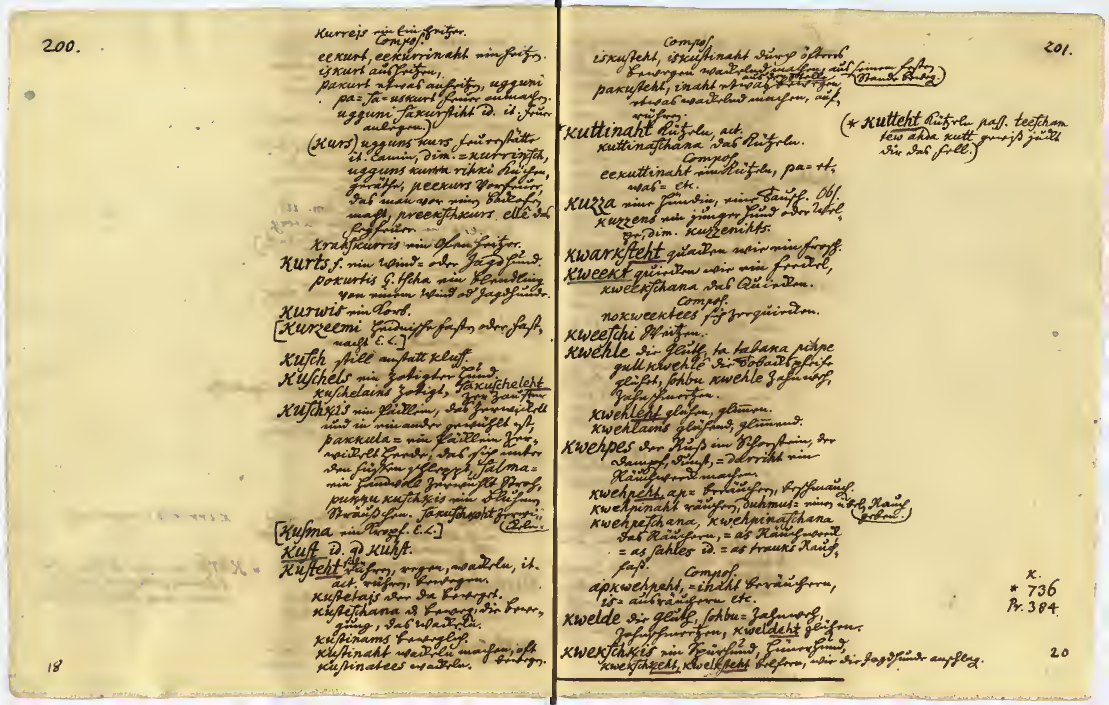 200.
Kurreis ein Einheitzer.
Compos.
eekurt, eekurrinaht einheitzen.
iskurt ausheitzen,
pakurt etwas anheitzen, ugguni
pa= sa= uskurt Feuer anmachen.
ugguni sakurstiht id. it. Feuer
anlegen.)
(Kurs) ugguns kurs Feuerstätte
it. Camin, dim. = kurrinsch,
ugguns kurra rihki Küchen,
geräthe, peekurs Vorfeuer,
das man vor einen Backofen
macht, preekschkurs, elles das
Fegfeuer.
krahskurris ein Ofenheitzer.
Kurts f. ein Wind= oder Jagdhund.
pokurtis G. tscha ein Blendling
von einem Wind od Jagdhunde.
Kurwis ein Korb.
[Kurzeemi heidnische Fasten oder Fast,
nacht E. L.]
Kusch still anstatt kluss.
Kuschels ein zotigter Hund.
kuschelains zotigt, sakuscheleht
Kuschkis ein Päcklein, das zerwickelt
und in einander gewühlt ist,
pakkula= ein Päcklein zer,
wickelt Heede, das sich unter
den Füssen schleppt, salma=
ein Handvoll zerwühlt Stroh,
pukku kuschkis ein Blumen
Sträuschen.
[Kusma ein Kropf. E. L.]
Kust id. qd Kuhst.
Kusteht rühren, regen, wackeln, it.
act. rühren, bewegen.
kustetais der da beweget.
kusteschana d. beweg, die bewe,
gung, das Wackeln.
kustinams beweglich.
kustinaht wackeln machen, oft
kustinatees wackeln. bewegen.
18
201.
Compos.
iskusteht, iskustinaht durch öfteres
bewegen wackelnd machen, aus seinem festen
Stande beweg.)
pakusteht, inaht etwas bewegen
etwas wackelnd machen, auf,
rühren.
*Kuttinaht Kützeln, act.
kuttinaschana das Kützeln.
(* Kutteht Kützeln pass. teescham
tew ahda kutt gewiß jückt
dir das Fell.)
Compos
eekuttinaht ein Kützeln, pa= et,
was= etc.
Kuzza eine Hündin, eine Tausch. Obs.
kuzzens ein junger Hund oder Wel,
pe, dim. kuzzenihts.
Kwarksteht quacken wie ein Frosch.
Kweekt quiecken wie ein Ferckel,
kweekschana das Quiecken.
Compos.
nokweektees sich zerquiecken.
Kweeschi Weitzen.
Kwehle die Gluth, ta tabaka pihpe
gull kwehle die Tobackspfeife
glühet, sohbu kwehle Zahnweh,
Zahnschmertzen.
kwehleht glühen, glimen.
kwehlains glühend, glimend.
Kwehpes der Ruß im Schorstein, der
Dampf, Dunst, = darriht ein
Räuchwerck machen.
kwehpeht, ap= beräuchern, beschmauch.
kwehpinaht räuchern, duhmus= einen üblen Rauch
geben.)
kwehpeschana, kwehpinaschana
das Räuchern, = as Räuchwerck
= as sahles id. = as trauks Rauch,
faß.
Compos
apkwehpeht, = inaht beräuchern,
is= ausräuchern etc.
Kwelde die Gluth, sohbu= Zahnweh,
Zahnschmertzen, kweldeht glühen.
Kwekschkis ein Spürhund, Hünerhund,
kwekschkeht, kwelksteht belfern, wie die Jagdhunde anschlag.
K.
* 736
Pr. 384
20